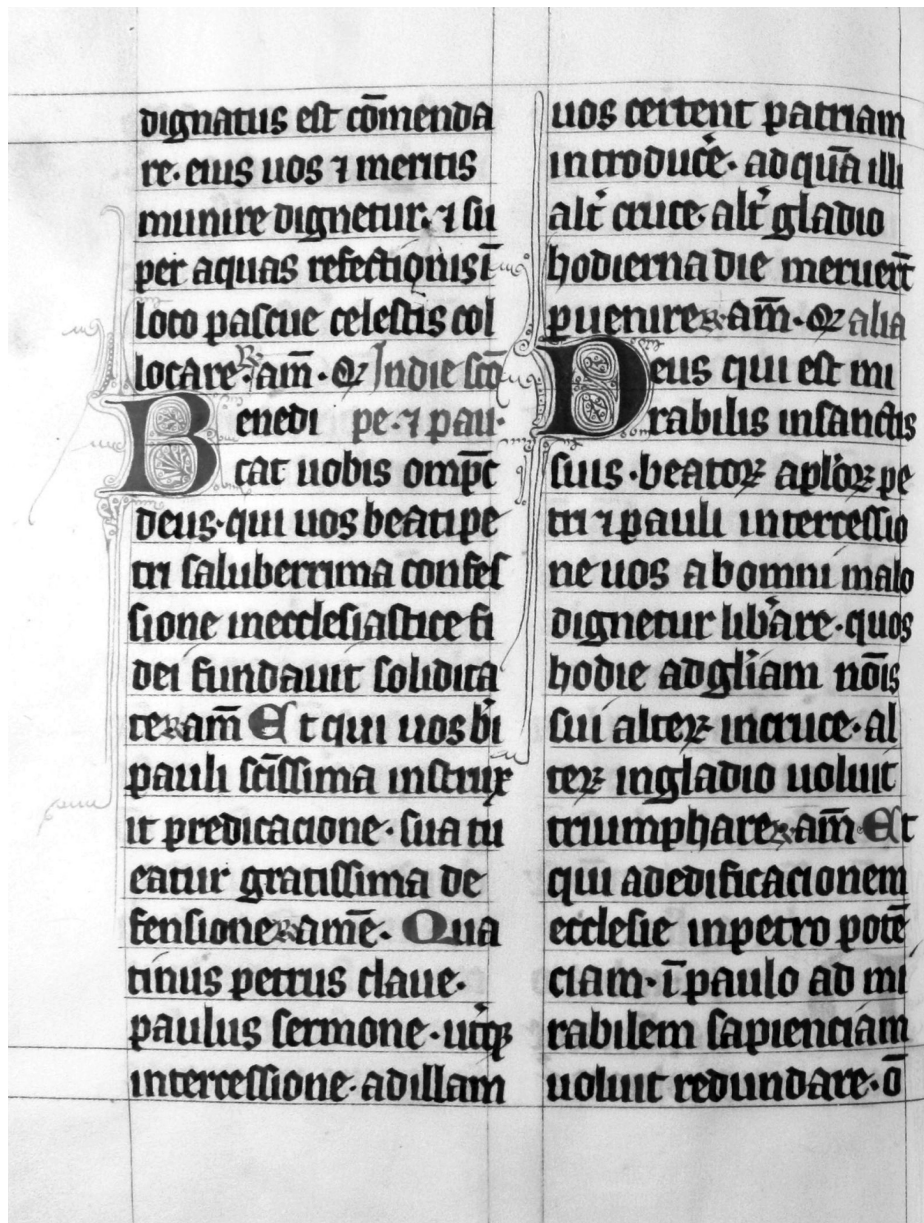 dignatus est cōmenda
re· eius uos ⁊ meritis
munire dignetur· ⁊ su
per aquas refectionis ī
loco pascue celestis col
locare· R am̄· Or In die sc̄o
Benedi pe· ⁊ pau·
cat uobis omp̄c
deus· qui uos beati pe
tri saluberrima confes
sione in ecclesiastice fi
dei fundauit solidita
te R am̄ Et qui uos b̄i
pauli sc̄issima instrux
it predicacione· sua tu
eatur gratissima de
fensione R amē· Qua
tinus petrus claue·
paulus sermone· ut̾qꝫ
intercessione· ad illam
uos certent patriam
introduc̾e· ad quā illi
alt̾ cruce· alt̾ gladio
hodierna die meruer̄t
puenire R am̄· Or alia
Deus qui est mi
rabilis in sanctis
suis· beatoꝝ apl̄oꝝ pe
tri ⁊ pauli intercessio
ne uos ab omni malo
dignetur lib̾are· quos
hodie ad gl̄iam nōis
sui alteꝝ in cruce· al
teꝝ in gladio uoluit
triumphare R am̄ Et
qui ad edificacionem
ecclesie in petro potē
ciam· ī paulo ad mi
rabilem sapienciam
uoluit redundare· ō